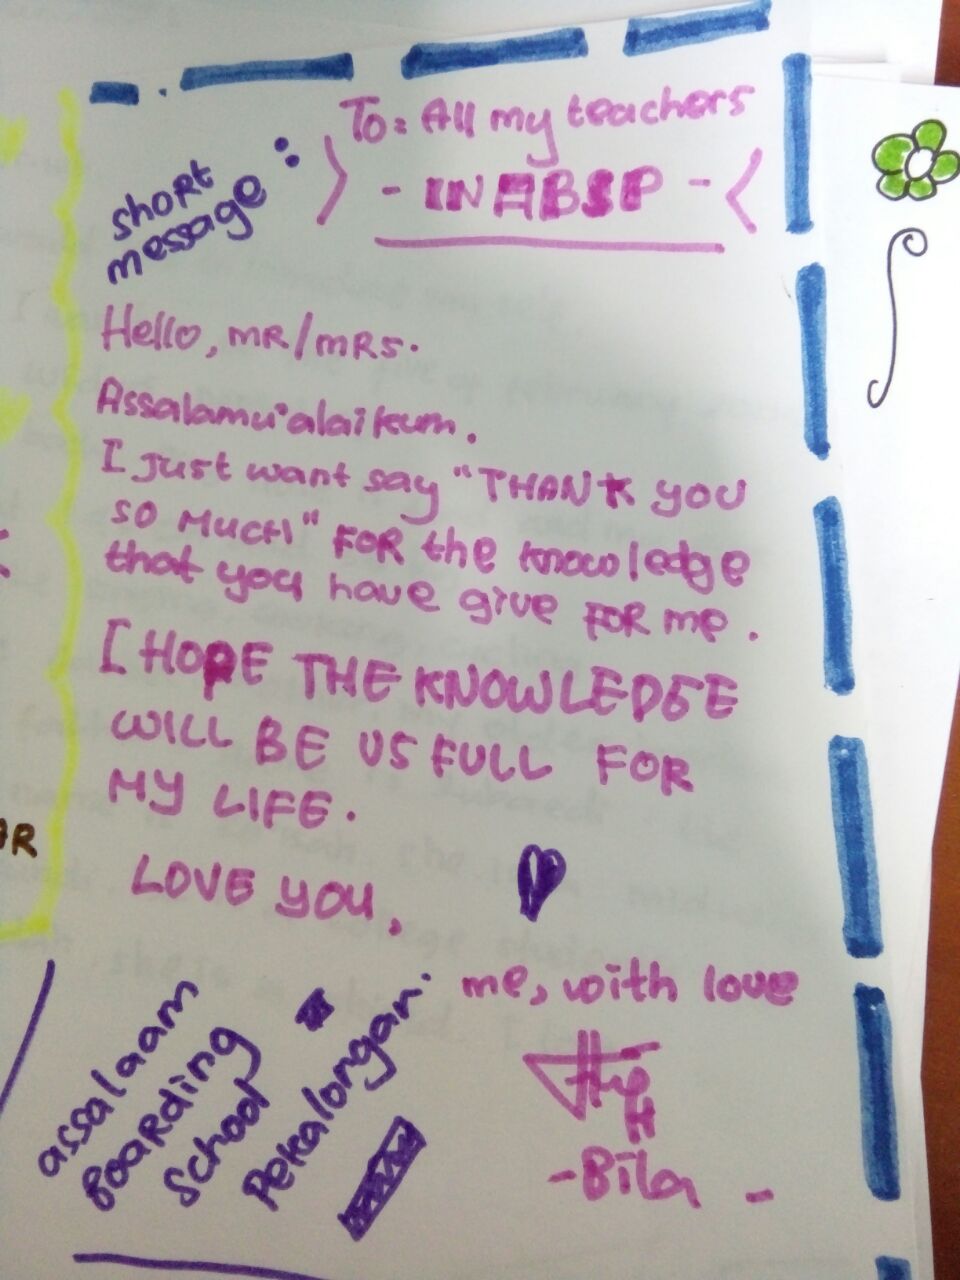 short
message :
To: All my teachers
- IN ABSP -
Hello, MR/MRS.
Assalamu'alaikum.
I just want say "THANK YOU
SO MUCH" FOR the knowledge
that you have give FOR me.
I HOPE THE KNOWLEDGE
WILL BE USFULL FOR
MY LIFE.
LOVE YOU,
me, with love
- Bila -
assalaam
Boarding
School
Pekalongan.